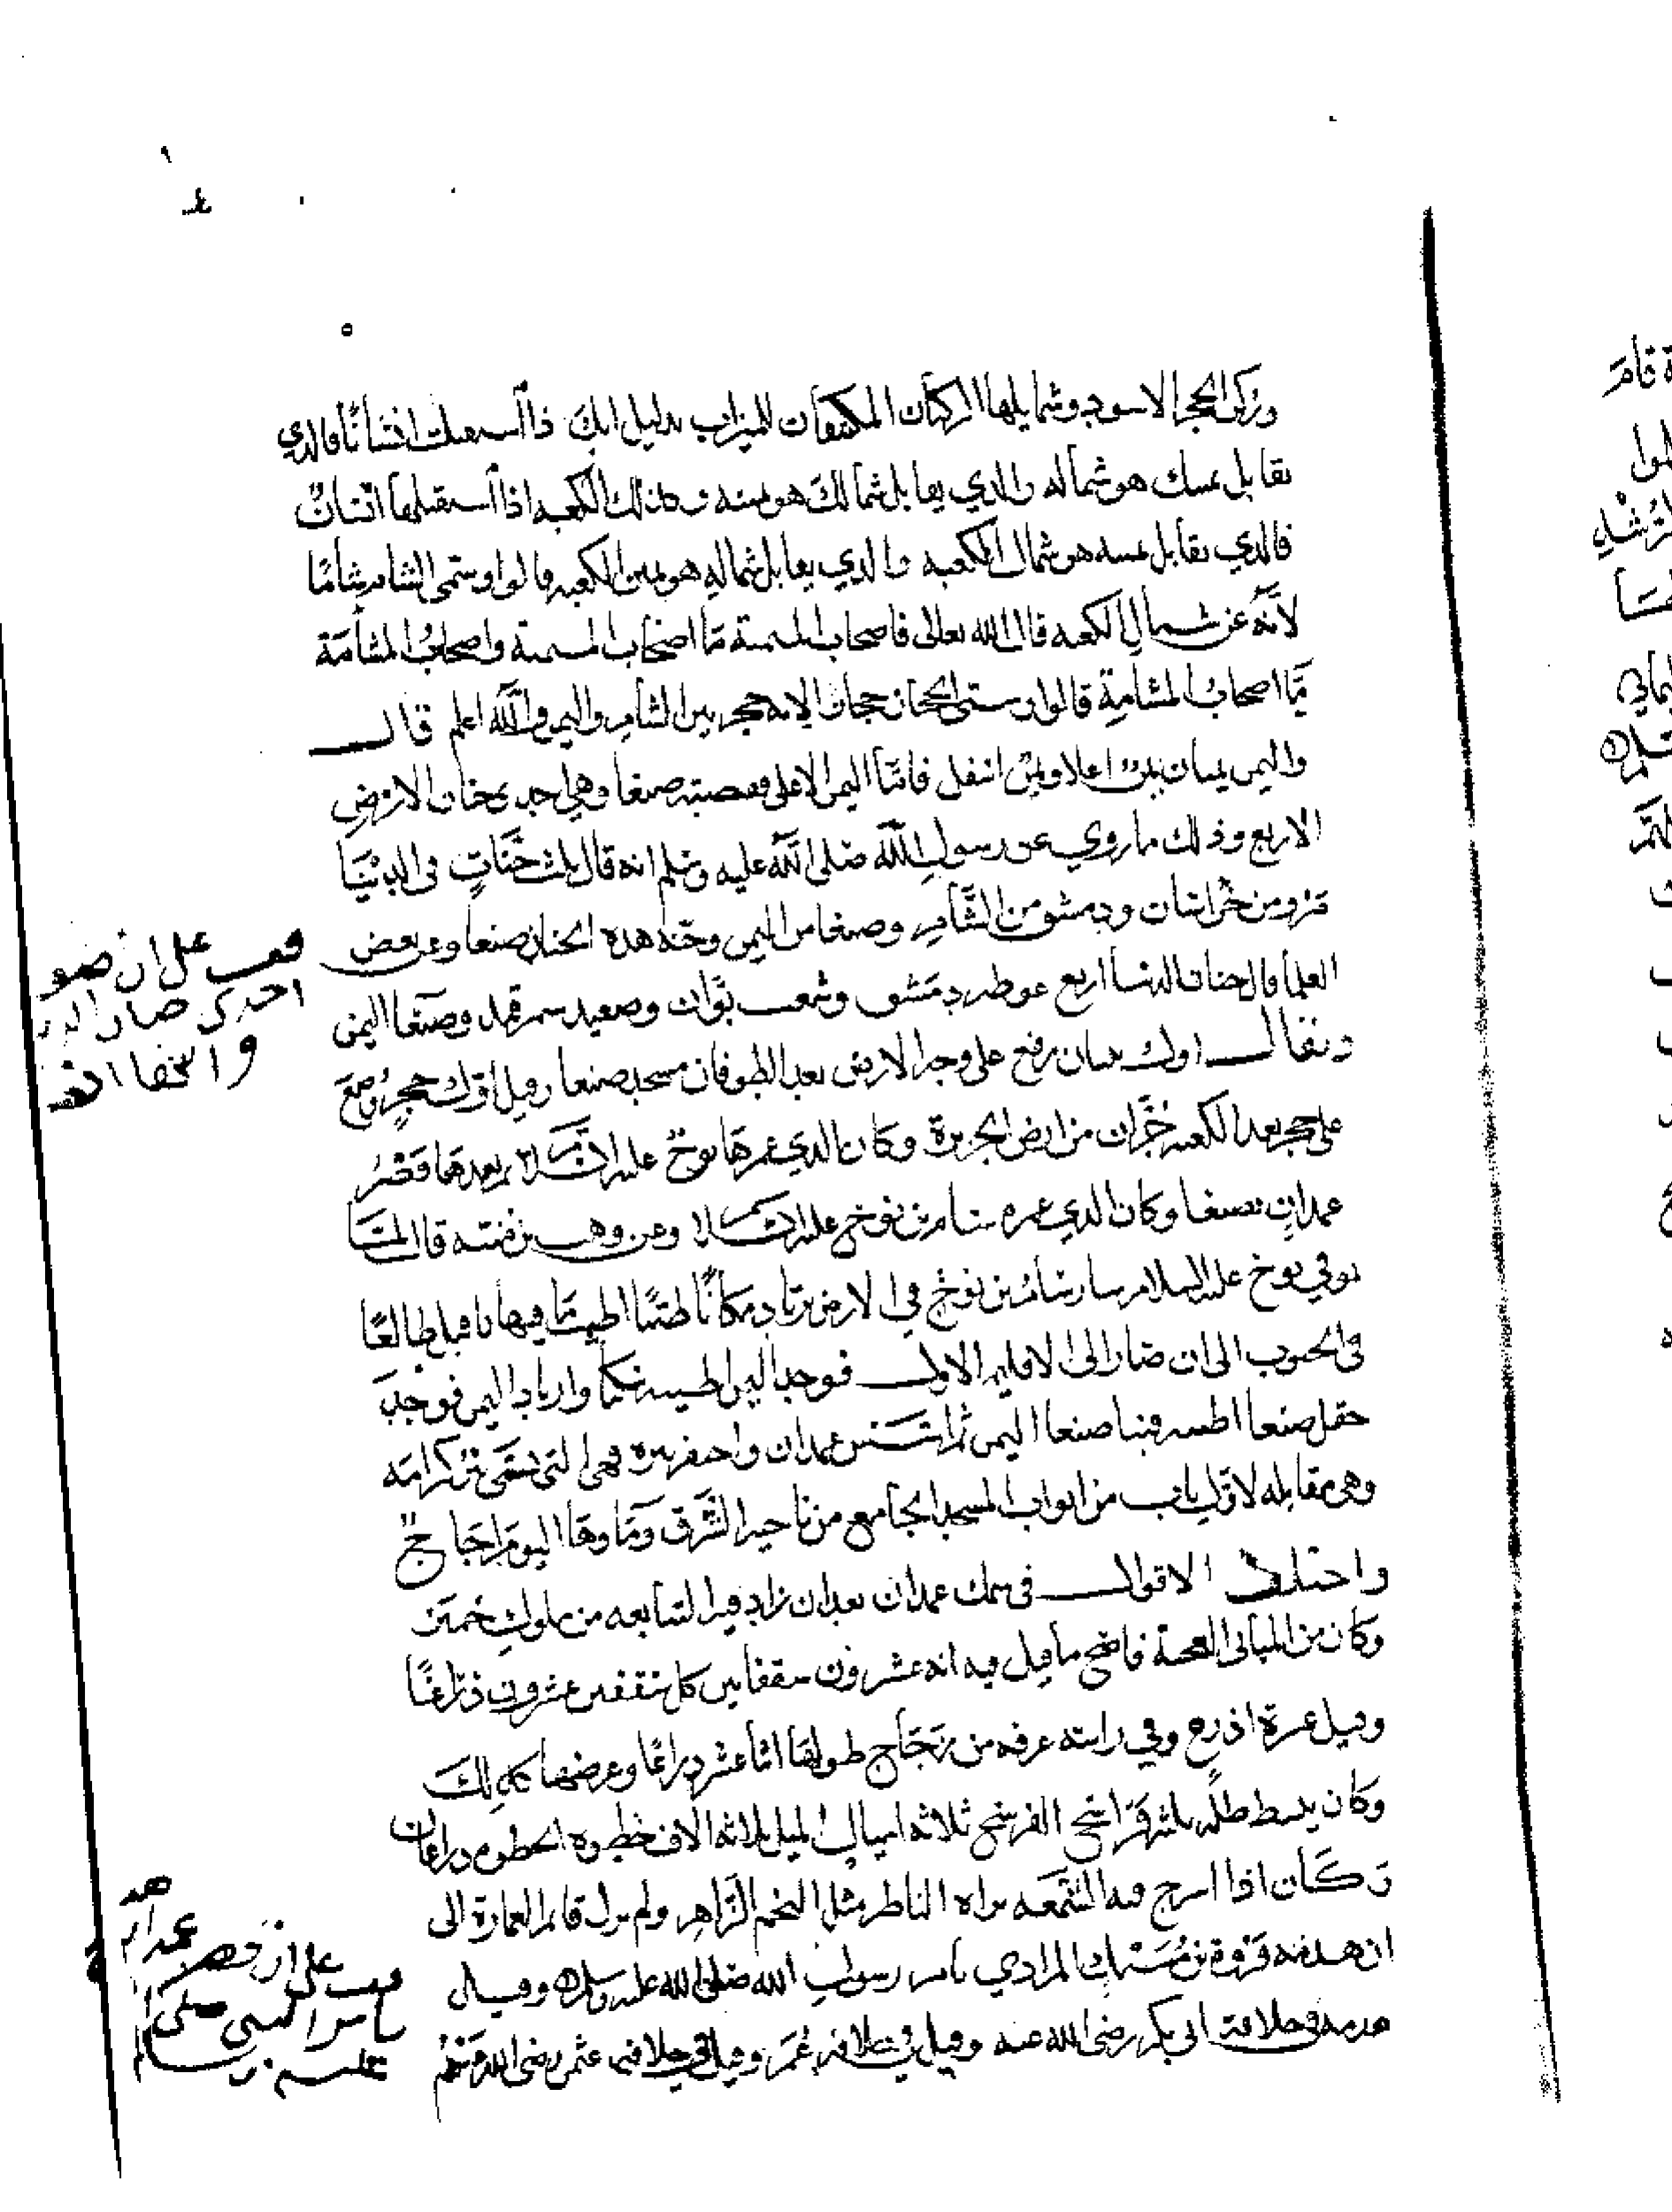 وركن الحجر الاسود وشمايلها الركنان المكتنفان للميزاب بدليل انك اذا استقبلت انسانا فالذي
يقابل يمينك هو شماله والذي يقابل شمالك هو يمينه وكذلك الكعبه اذا استقبلها انسان
فالذي يقابل يمينه هو شمال الكعبه والذي يقابل شماله هو يمين الكعبه قالوا وسمى الشام شاما
لانه عن شمال الكعبه قال الله تعالى فاصحاب الميمنة ما اصحاب الميمنة واصحاب المشأمة
ما اصحاب المشأمة قالوا وسمى الحجاز حجازا لانه حجز بين الشام واليمن والله اعلم قال
واليمن يمنان يمن اعلا ويمن اسفل فاما اليمن الاعلى فقصبته صنعا وهي احدى جنان الارض
الاربع وذلك ما روي عن رسول الله صلى الله عليه وسلم انه قال ثلث جنات في الدنيا
مرو من خراسان ودمشق من الشام وصنعا من اليمن وجنة هذه الجنان صنعا وعن بعض
العلما قال جنات الدنيا اربع غوطه دمشق وشعب بوان وصعيد سمرقند وصنعا اليمن
ويقال اول بنيان رفع على وجه الارض بعد الطوفان مسجد صنعا وقيل اول حجر وضع
على حجر بعد الكعبه حران من ارض الجزيرة وكان الذي عمرها نوح عليه السلام وبعدها قصر
غمدان بصنعا وكان الذي عمره سام بن نوح عليه السلام وعن وهب بن منبه قال لما
توفي نوح عليه السلام سار سام بن نوح في الارض يرتاد مكانا طيبا اطيب ما فيها فاقبل طالعا
في الجنوب الى ان صار الى الاقليم الاول فوجد اليمن اطيبه مسكنا وارتاد اليمن فوجد
حقل صنعا اطيبه فبنا صنعا اليمن ثم اسس غمدان واحتفر بيره فهي التي تسمى بير كرامه
وهي مقابله لاول باب من ابواب المسجد الجامع من ناحية الشرق وماوها اليوم اجاج
واختلف الاقوال في سمك غمدان بعد ان زاد فيه التبابعه من ملوك حمير
وكان من المباني العجيبة فاصح ما قيل فيه انه عشرون سقفا بين كل سقفين عشرون ذراعا
وقيل عشرة اذرع وفي راسه غرفه من زجاج طولها اثنا عشر ذراعا وعرضها كذلك
وكان يبسط ظله ثلثه فراسخ الفرسخ ثلاثه اميال الميل ثلاثه الاف خطوه الخطوه ذراعان
وكان اذا اسرج فيه الشمعه يراه الناظر مثل النجم الزاهر ولم يزل قائم العمارة الى
ان هدمه فروة بن مسيك المرادي بامر رسول الله صلى الله عليه وسلم وقيل
هدمه في خلافة ابي بكر رضي الله عنه وقيل في خلافة عمر وقيل في خلافه عثمن رضي الله عنهم
قف على ان صنعا
احدى جنان الدنيا
قف على ان قصر غمدان هدم
بامر النبي صلى الله
عليه وسلم